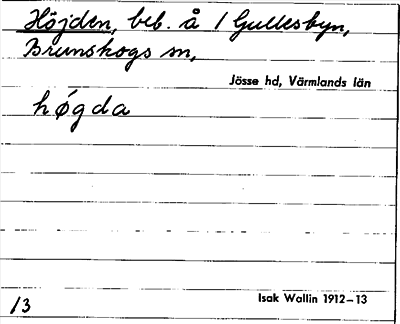 Höjden, beb. å 1 Gullesbyn,
Brunskogs sn,
Jösse hd, Värmlands län
hǿgda
Isak Wallin 1912–13
13